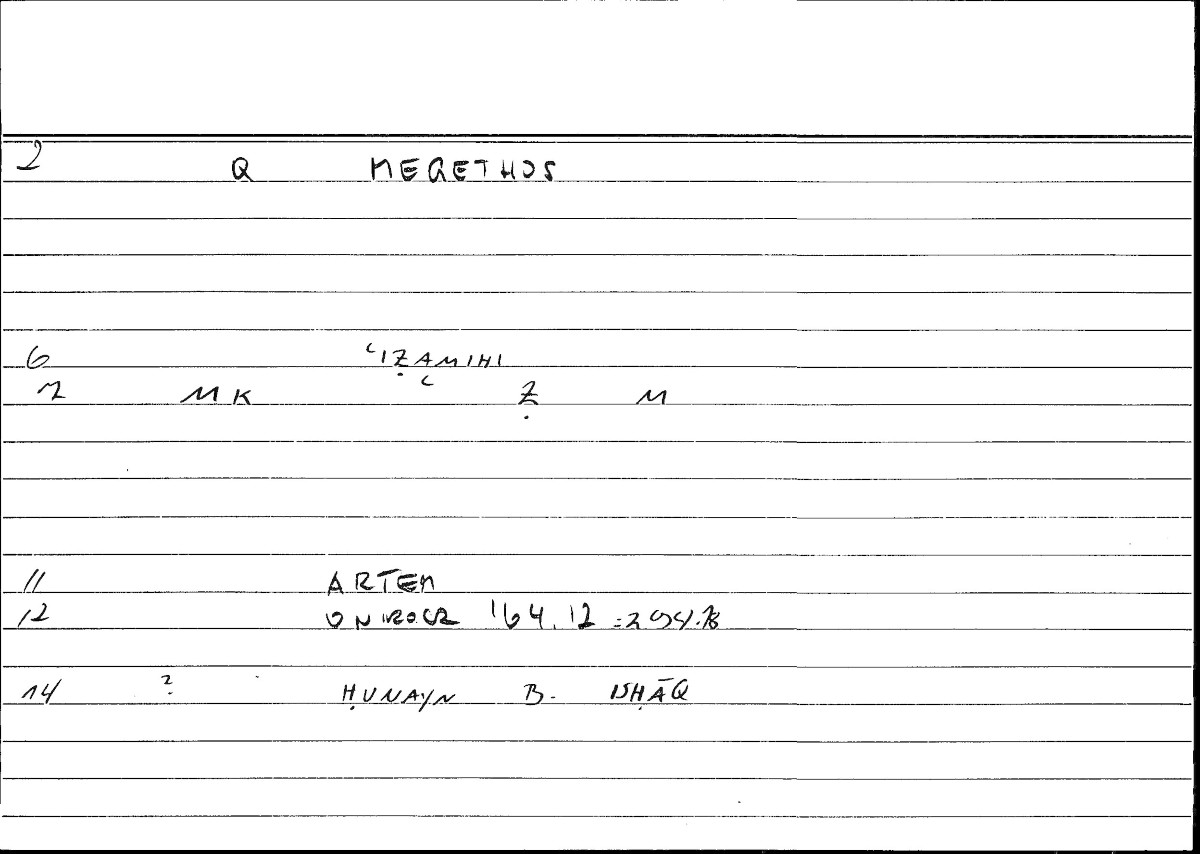 2 Q MEGETHOS
6 ʿIẒAMIHI
7 MK ʿ Ẓ M
11 ARTEM
12 ONIROCR 164.12 =294.
14 ? ḤUNAYN B. ISḤĀQ